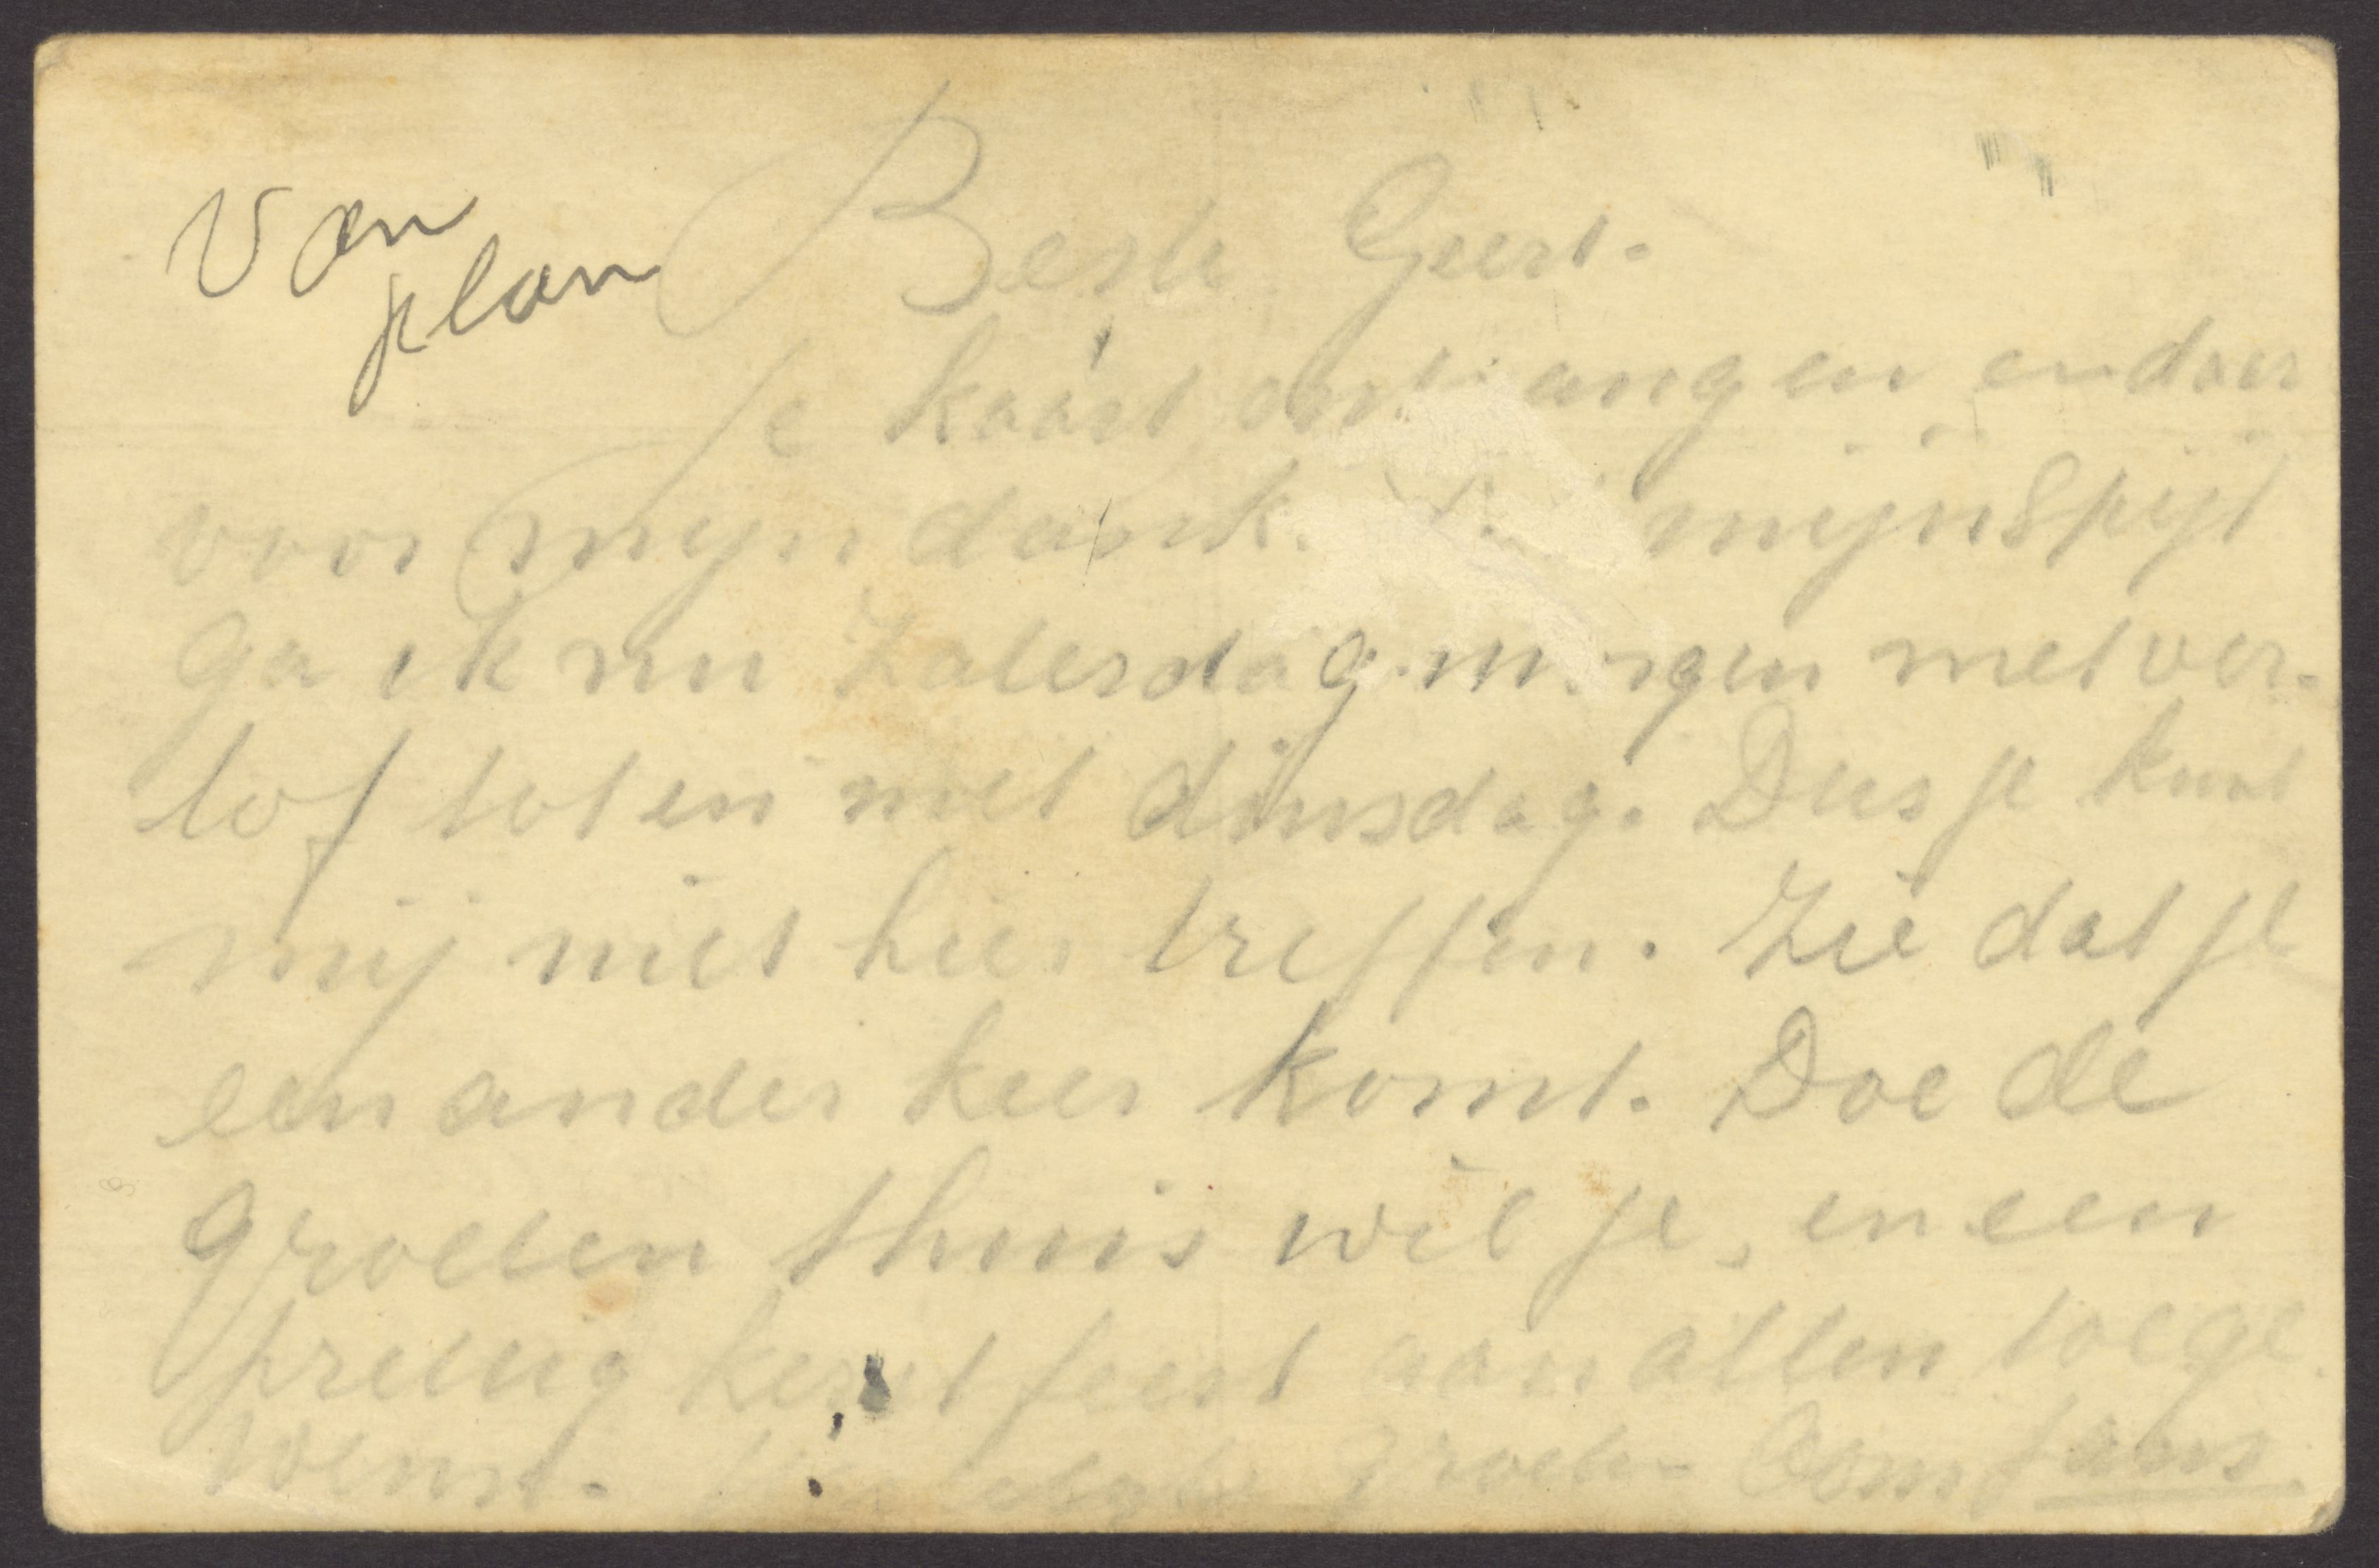 Van
plan
Beste Geert.
Je kaart ontvangen en daar
voor mijn dank. mijn Spijt
ga ik nu Zaterdag morgen met ver-
lof tot en met dinsdag. Dus je kunt
mij niet hier treffen. Zie dat je
een ander keer komt. Doe de
groeten thuis wil je, en een
prettig kerstfeest aan allen toege
wenst. groeten Oom Jans.